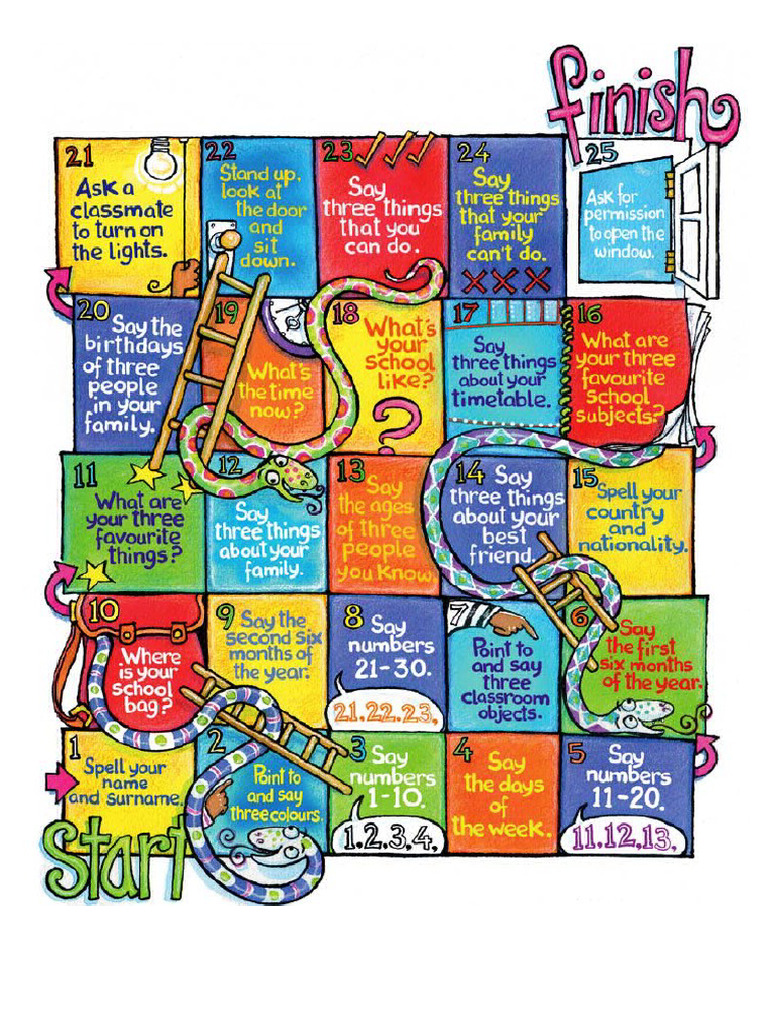 finish
21
Ask a
classmate
to turn on
the lights.
22
Stand up,
look at
the door
and
sit
down.
23
Say
three things
that you
can do.
24
Say
three things
that your
family
can't do.
25
Ask for
permission
to open the
window.
20
Say the
birthdays
of three
people
in your
family.
19
What's
the time
now?
18
What's
your
school
like?
?
17
Say
three things
about your
timetable.
16
What are
your three
favourite
school
subjects?
11
What are
your three
favourite
things?
12
Say
three things
about your
family.
13
Say
the ages
of three
people
you know.
14
Say
three things
about your
best
friend.
15
Spell your
country
and
nationality.
10
Where
is your
school
bag?
9
Say the
second six
months of
the year.
8
Say
numbers
21-30.
21.22.23.
7
Point to
and say
three
classroom
objects.
6
Say
the first
six months
of the year.
1
Spell your
name
and surname.
2
Point to
and say
three colours.
3
Say
numbers
1-10.
1.2.3.4.
4
Say
the days
of
the week.
5
Say
numbers
11-20.
11.12.13.
Start